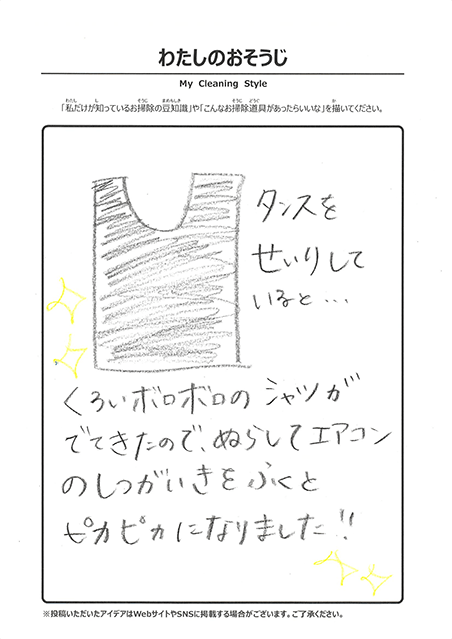 わたしのおそうじ
My Cleaning Style
「私だけが知っているお掃除の豆知識」や「こんなお掃除道具があったらいいな」を描いてください。
タンスを
せいりして
いると…
くろいボロボロの シャツが
でてきたので、ぬらしてエアコン
のしつがいきを ふくと
ピカピカになりました!!
※投稿いただいたアイデアはWebサイトやSNSに掲載する場合がございます。ご了承ください。